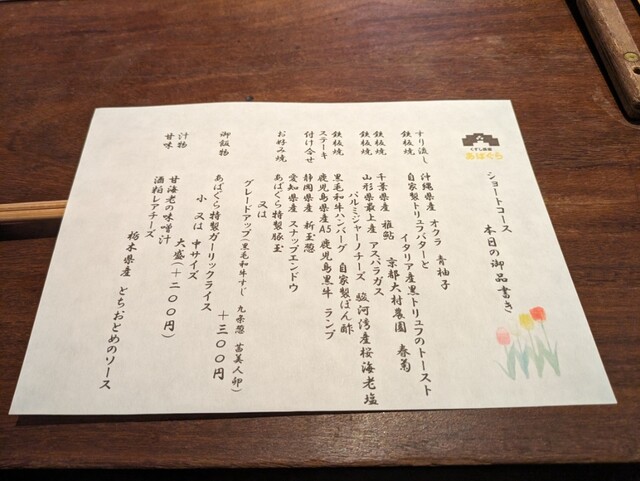 くずし割烹
あぱぐら
ショートコース　本日の御品書き
すり流し　沖縄県産　オクラ　青柚子
鉄板焼　自家製トリュフバターと
イタリア産黒トリュフのトースト
鉄板焼　千葉県産　稚鮎　京都大村農園　春菊
鉄板焼　山形県最上産　アスパラガス
パルミジャーノチーズ　駿河湾産桜海老塩
鉄板焼　黒毛和牛ハンバーグ　自家製ぽん酢
ステーキ　鹿児島県産A5鹿児島黒牛　ランプ
付け合せ　静岡県産　新玉葱
愛知県産　スナップエンドウ
お好み焼　あぱぐら特製豚玉
又は
グレードアップ（黒毛和牛すじ　九条葱　苗美人卵）
＋三〇〇円
御飯物　あぱぐら特製ガーリックライス
小　又は　中サイズ
大盛（＋二〇〇円）
汁物　甘海老の味噌汁
甘味　酒粕レアチーズ
栃木県産　とちおとめのソース